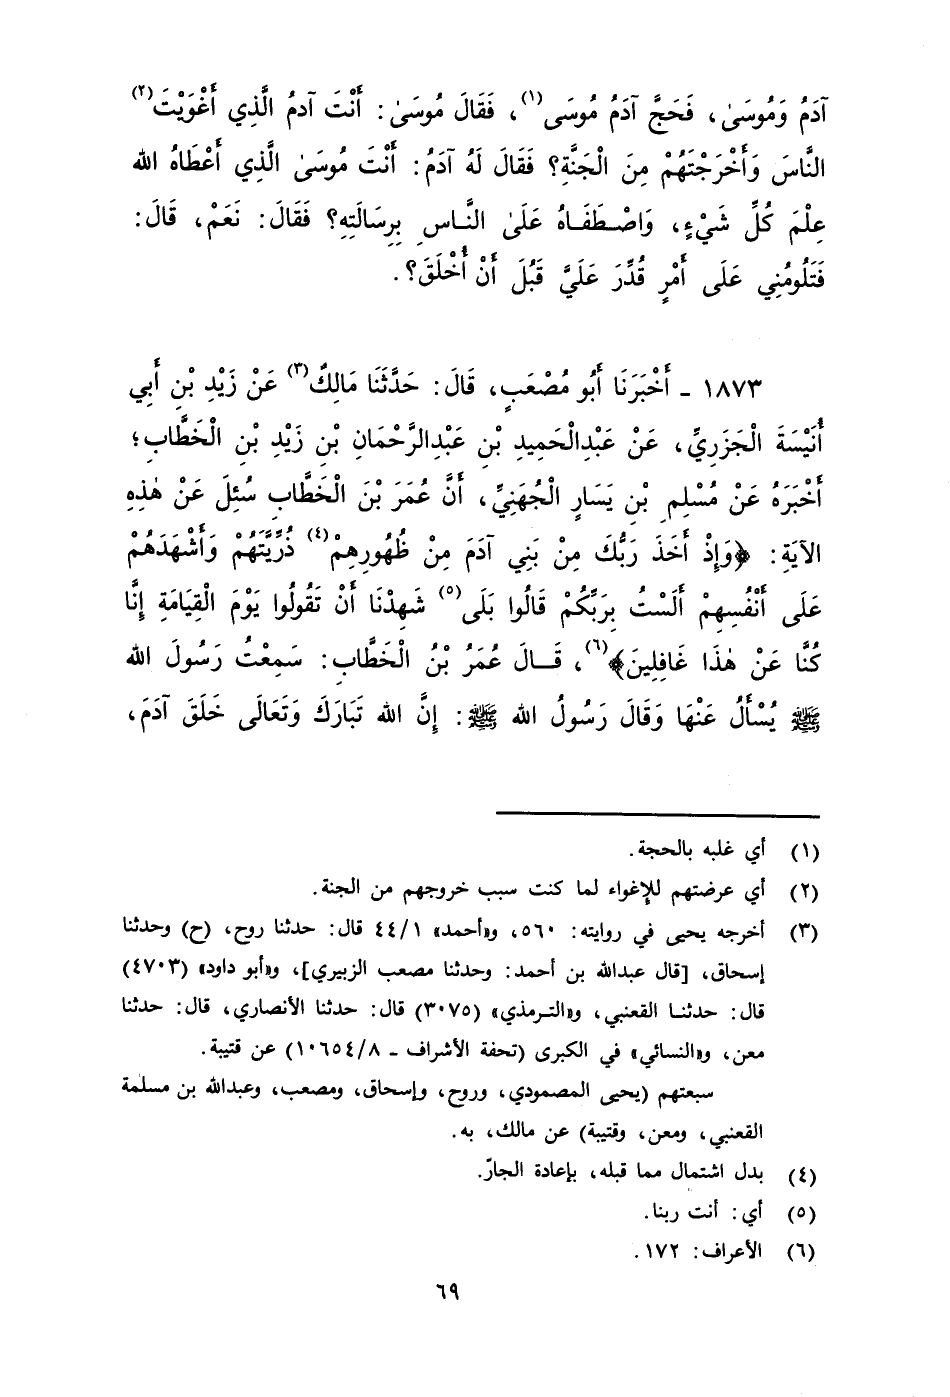 آدَمُ وَمُوسَىٰ، فَحَجَّ آدَمُ مُوسَى(١)، فَقَالَ مُوسَىٰ: أَنْتَ آدَمُ الَّذِي أَغْوَيْتَ(٢)
النَّاسَ وَأَخْرَجْتَهُمْ مِنَ الْجَنَّةِ؟ فَقَالَ لَهُ آدَمُ: أَنْتَ مُوسَىٰ الَّذِي أَعْطَاهُ الله
عِلْمَ كُلِّ شَيْءٍ، وَاصْطَفَاهُ عَلَىٰ النَّاسِ بِرِسَالَتِهِ؟ فَقَالَ: نَعَمْ، قَالَ:
فَتَلُومُنِي عَلَى أَمْرٍ قُدِّرَ عَلَيَّ قَبْلَ أَنْ أُخْلَقَ؟.
١٨٧٣ ـ أَخْبَرَنَا أَبُو مُصْعَبٍ، قَالَ: حَدَّثَنَا مَالِكٌ(٣) عَنْ زَيْدِ بْنِ أَبِي
أُنَيْسَةَ الْجَزَرِيِّ، عَنْ عَبْدِالْحَمِيدِ بْنِ عَبْدِالرَّحْمَانِ بْنِ زَيْدِ بْنِ الْخَطَّابِ؛
أَخْبَرَهُ عَنْ مُسْلِمِ بْنِ يَسَارٍ الْجُهَنِيِّ، أَنَّ عُمَرَ بْنَ الْخَطَّابِ سُئِلَ عَنْ هٰذِهِ
الآيَةِ: ﴿وَإِذْ أَخَذَ رَبُّكَ مِنْ بَنِي آدَمَ مِنْ ظُهُورِهِمْ(٤) ذُرِّيَّتَهُمْ وَأَشْهَدَهُمْ
عَلَى أَنْفُسِهِمْ أَلَسْتُ بِرَبِّكُمْ قَالُوا بَلَى(٥) شَهِدْنَا أَنْ تَقُولُوا يَوْمَ الْقِيَامَةِ إِنَّا
كُنَّا عَنْ هٰذَا غَافِلِينَ﴾(٦)، قَالَ عُمَرُ بْنُ الْخَطَّابِ: سَمِعْتُ رَسُولَ الله
ﷺ يُسْأَلُ عَنْهَا وَقَالَ رَسُولُ الله ﷺ: إِنَّ الله تَبَارَكَ وَتَعَالَى خَلَقَ آدَمَ،
(١) أي غلبه بالحجة.
(٢) أي عرضتهم للإغواء لما كنت سبب خروجهم من الجنة.
(٣) أخرجه يحيى في روايته: ٥٦٠، و«أحمد» ٤٤/١ قال: حدثنا روح، (ح) وحدثنا
إسحاق، [قال عبدالله بن أحمد: وحدثنا مصعب الزبيري]، و«أبو داود» (٤٧٠٣)
قال: حدثنا القعنبي، و«الترمذي» (٣٠٧٥) قال: حدثنا الأنصاري، قال: حدثنا
معن، و«النسائي» في الكبرى (تحفة الأشراف ـ ١٠٦٥٤/٨) عن قتيبة.
سبعتهم (يحيى المصمودي، وروح، وإسحاق، ومصعب، وعبدالله بن مسلمة
القعنبي، ومعن، وقتيبة) عن مالك، به.
(٤) بدل اشتمال مما قبله، بإعادة الجارّ.
(٥) أي: أنت ربنا.
(٦) الأعراف: ١٧٢.
٦٩